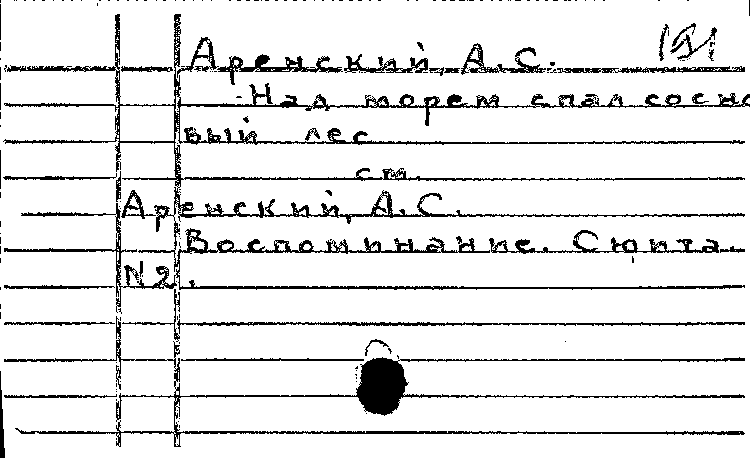 Аренский, А.С. 191
Над морем спал сосно
вый лес
см.
Аренский, А.С.
Воспоминание. Сюита.
N2.